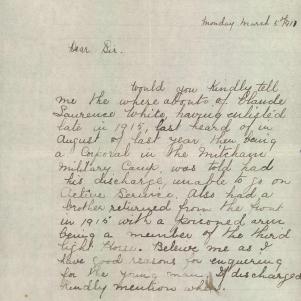 Monday, March 5th 1917
Dear Sir.
Would you Kindly tell
me the where abouts of Claude
Laurence White, having enlisted
late in 1915, last heard of in
August of last year then being
a Corporal in the Mitcham
Military Camp, was told had
his discharge, unable to go on
Active Service. Also had a
brother returned from the front
in 1915 with a poisoned arm
being a member of the third
light Horse. Beleive me as I
have good reasons for enquering
for the young man, If discharged
Kindly mention when.